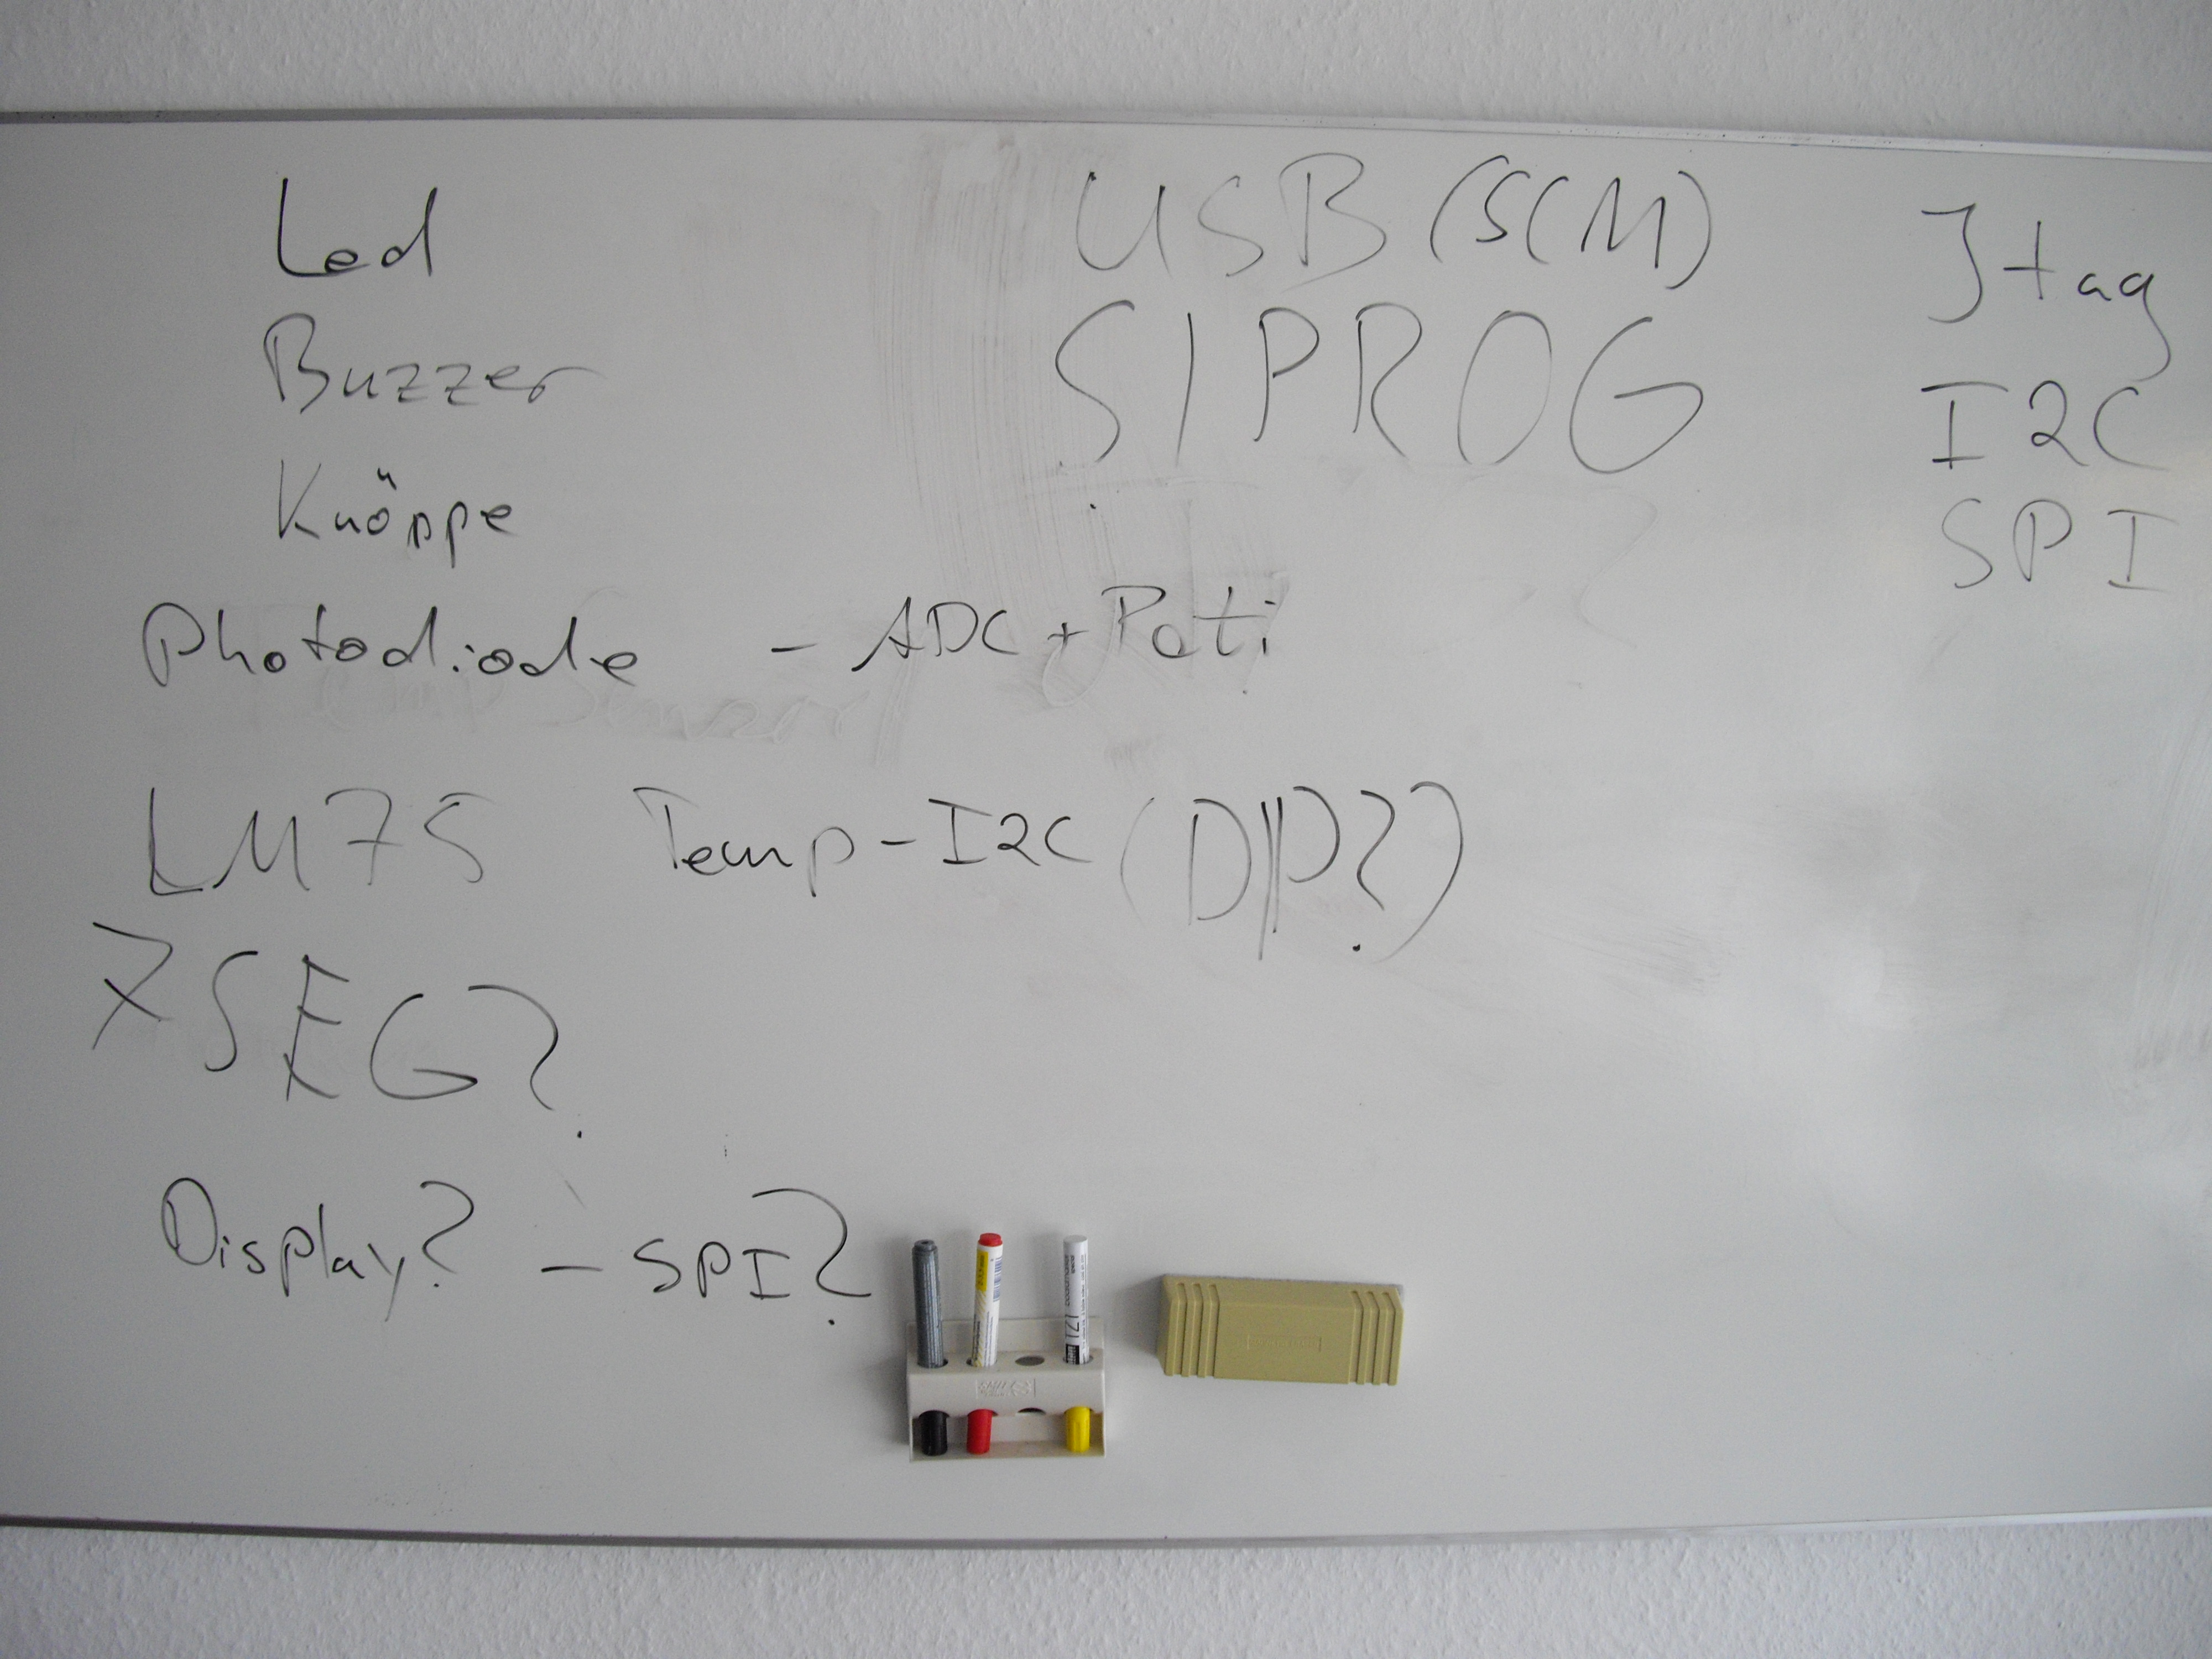 Led
Buzzer
Knöppe
Photodiode - ADC + Poti
LM75 Temp - I2C (DIP?)
7SEG?
Display? - SPI?
USB (SCM)
SIPROG
Jtag
I2C
SPI